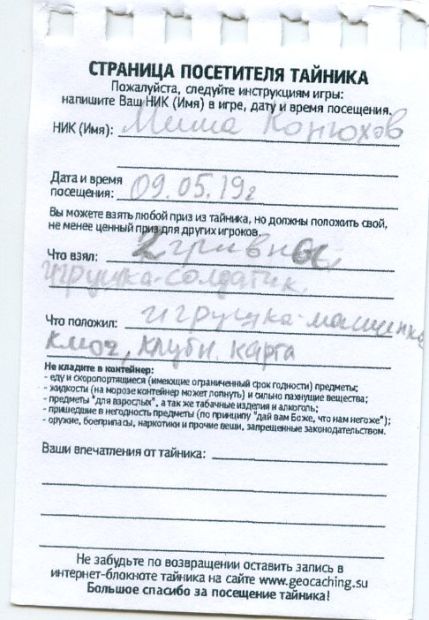 СТРАНИЦА ПОСЕТИТЕЛЯ ТАЙНИКА
Пожалуйста, следуйте инструкциям игры:
напишите Ваш НИК (Имя) в игре, дату и время посещения.
НИК (Имя): Миша Конюхов
Дата и время
посещения: 09.05.19г
Вы можете взять любой приз из тайника, но должны положить свой,
не менее ценный приз для других игроков.
Что взял: 2 гривны,
игрушка-солдатик
Что положил: игрушка-машинка
ключ, клубн. карта
Не кладите в контейнер:
- еду и скоропортящиеся (имеющие ограниченный срок годности) предметы;
- жидкости (на морозе контейнер может лопнуть) и сильно пахнущие вещества;
- предметы "для взрослых", а так же табачные изделия и алкоголь;
- пришедшие в негодность предметы (по принципу "дай вам Боже, что нам негоже");
- оружие, боеприпасы, наркотики и прочие вещи, запрещенные законодательством.
Ваши впечатления от тайника:
Не забудьте по возвращении оставить запись в
интернет-блокноте тайника на сайте www.geocaching.su
Большое спасибо за посещение тайника!